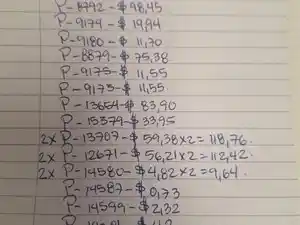 P-8792-$98,45
P-9179-$19,94
P-9180-$11,70
P-8879-$75,38
P-9175-$11,55
P-9173-$11,55
P-13654-$83,90
P-15379-$33,95
2x P-13707-$59,38x2=118,76.
2x P-12671-$56,21x2=112,42.
2x P-14580-$4,82x2=9,64.
P-14587-$0,73
P-14599-$2,32